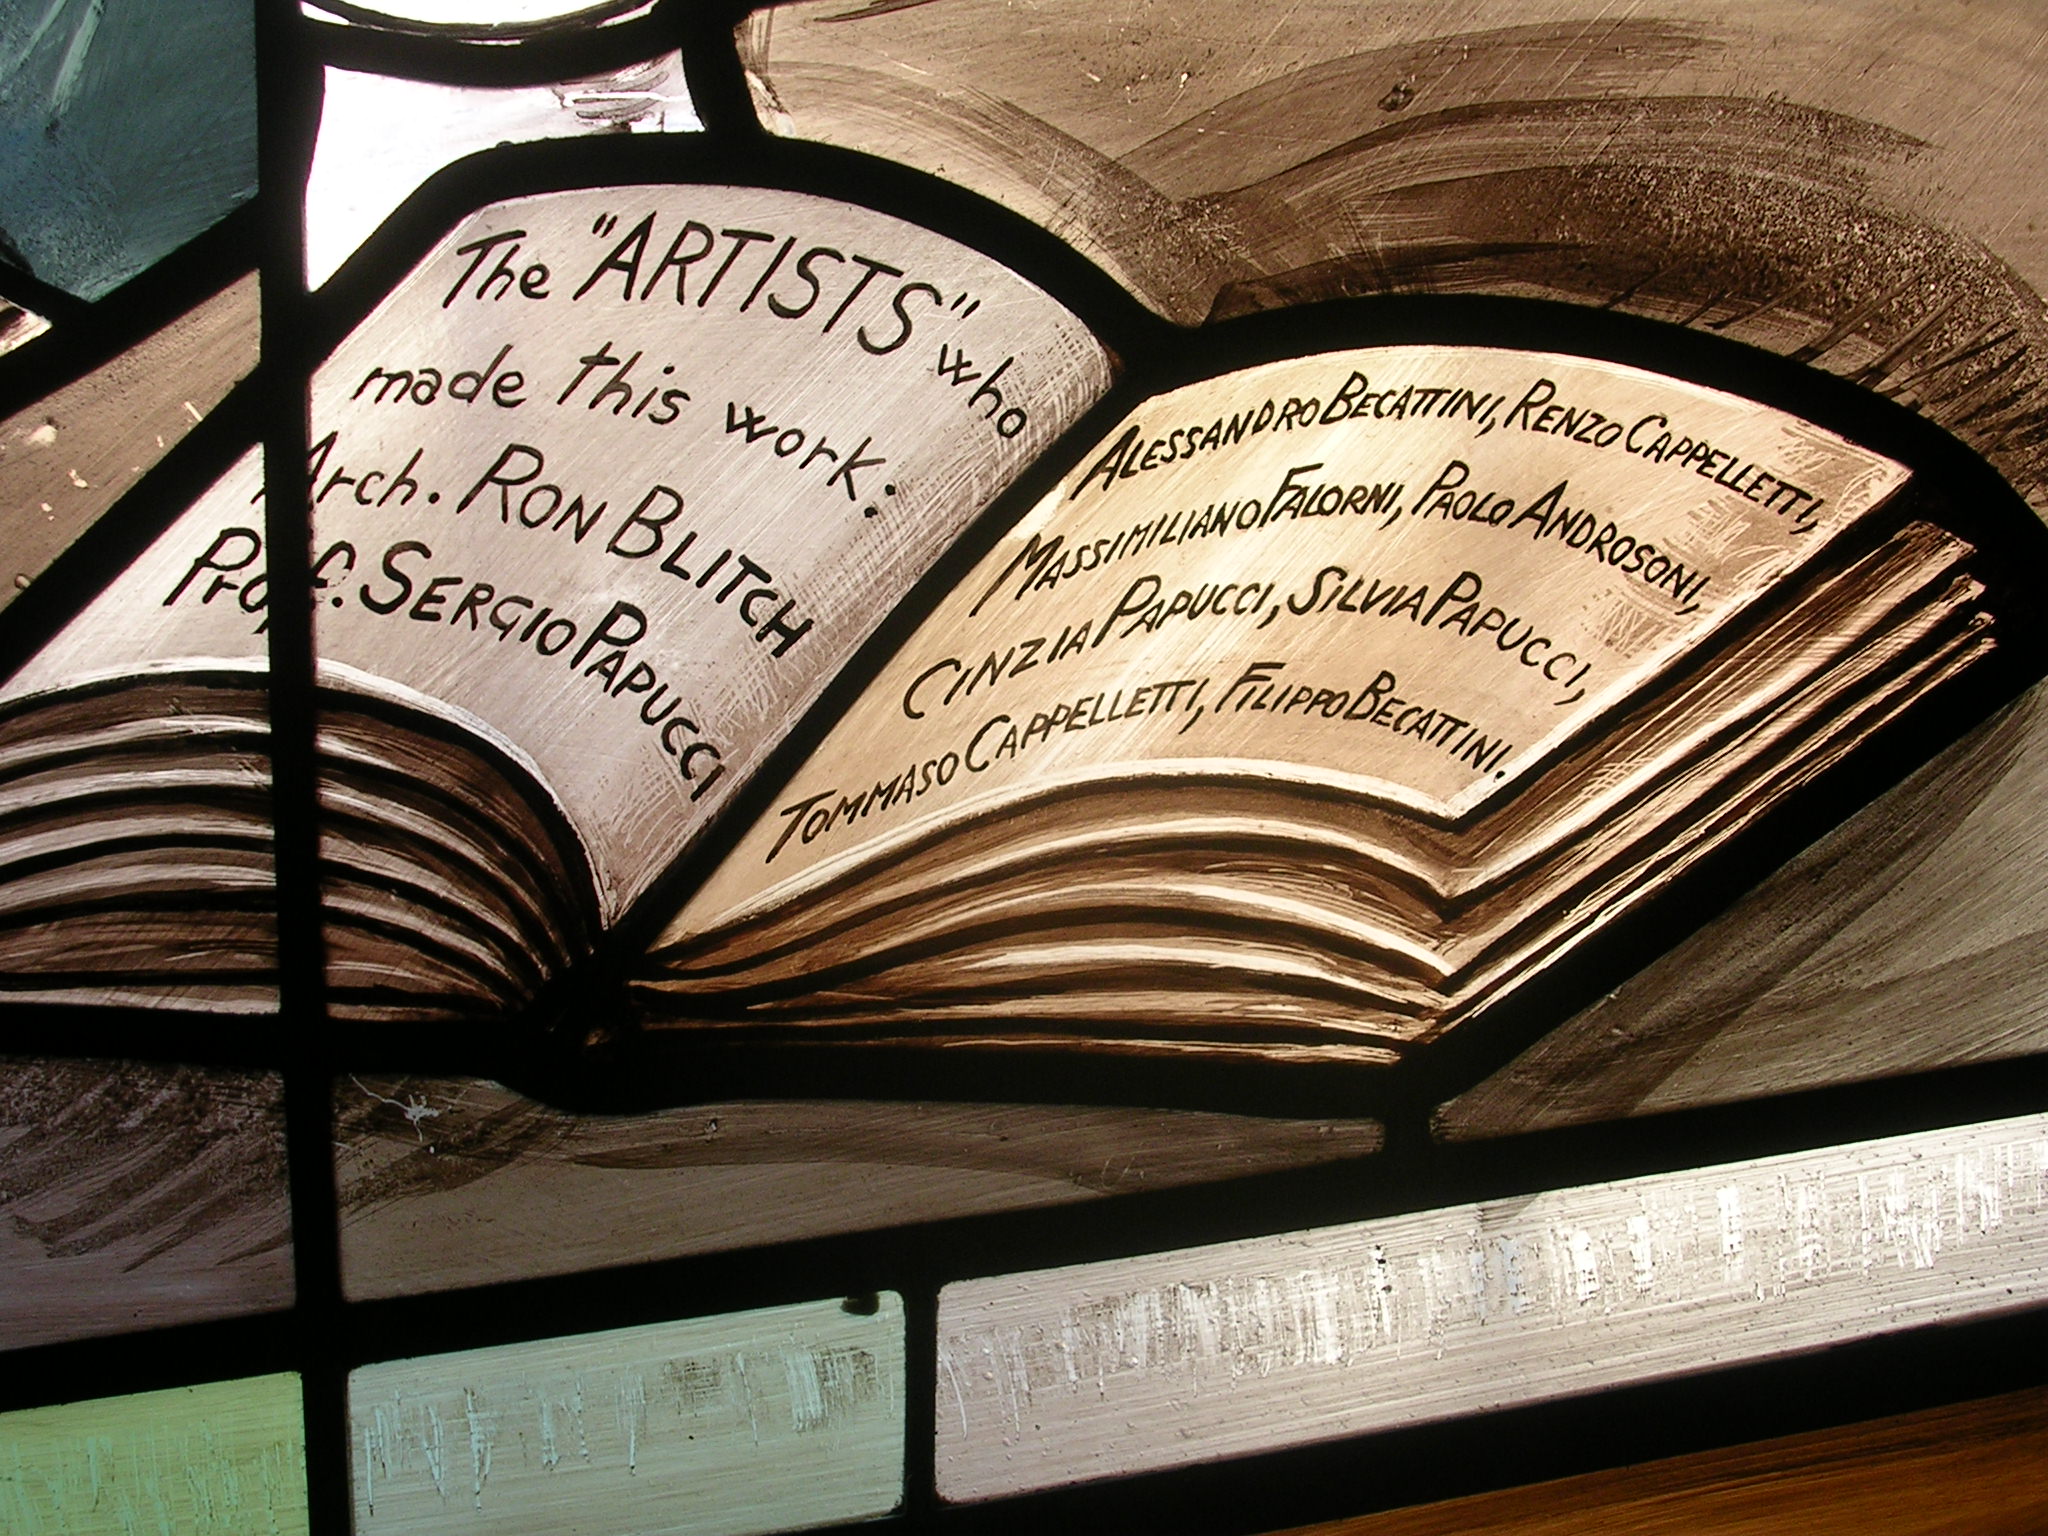 The "ARTISTS" who
made this work:
Arch. RON BLITCH
Prof. SERGIO PAPUCCI
ALESSANDRO BECATTINI, RENZO CAPPELLETTI,
MASSIMILIANO FALORNI, PAOLO ANDROSONI,
CINZIA PAPUCCI, SILVIA PAPUCCI,
TOMMASO CAPPELLETTI, FILIPPO BECATTINI.